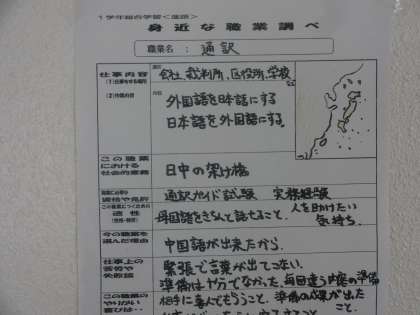 1学年総合学習<進路>
身近な職業調べ
職業名： 通訳
仕事内容
会社、裁判所、区役所、学校など
外国語を日本語にする
日本語を外国語にする。
この職業における社会的意義
日中の架け橋
資格や免許
通訳ガイド試験 実務経験
適性
母国語をきちんと話せること。 人を助けたい気持ち。
今の職業を選んだ理由
中国語が出来たから。
仕事上の苦労や失敗談
緊張で言葉が出てこない。
準備は十分でなかった。毎回違う内容の準備
この職業のやりがい喜びは…
相手に喜んでもらうこと。準備の成果が出たこと。